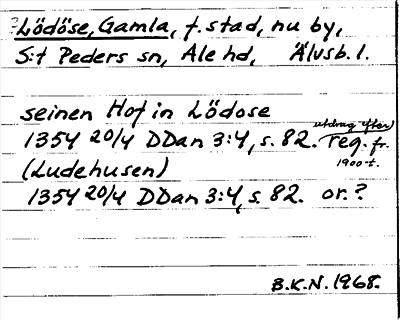 Lödöse, Gamla, f. stad, nu by,
S:t Peders sn, Ale hd, Älvsb. l.
seinen Hof in Lödose
1354 20/4 DDan 3:4, s. 82. utdrag efter reg. fr. 1900-t.
(Ludehusen)
1354 20/4 DDan 3:4, s. 82. or.?
B.K.N. 1968.